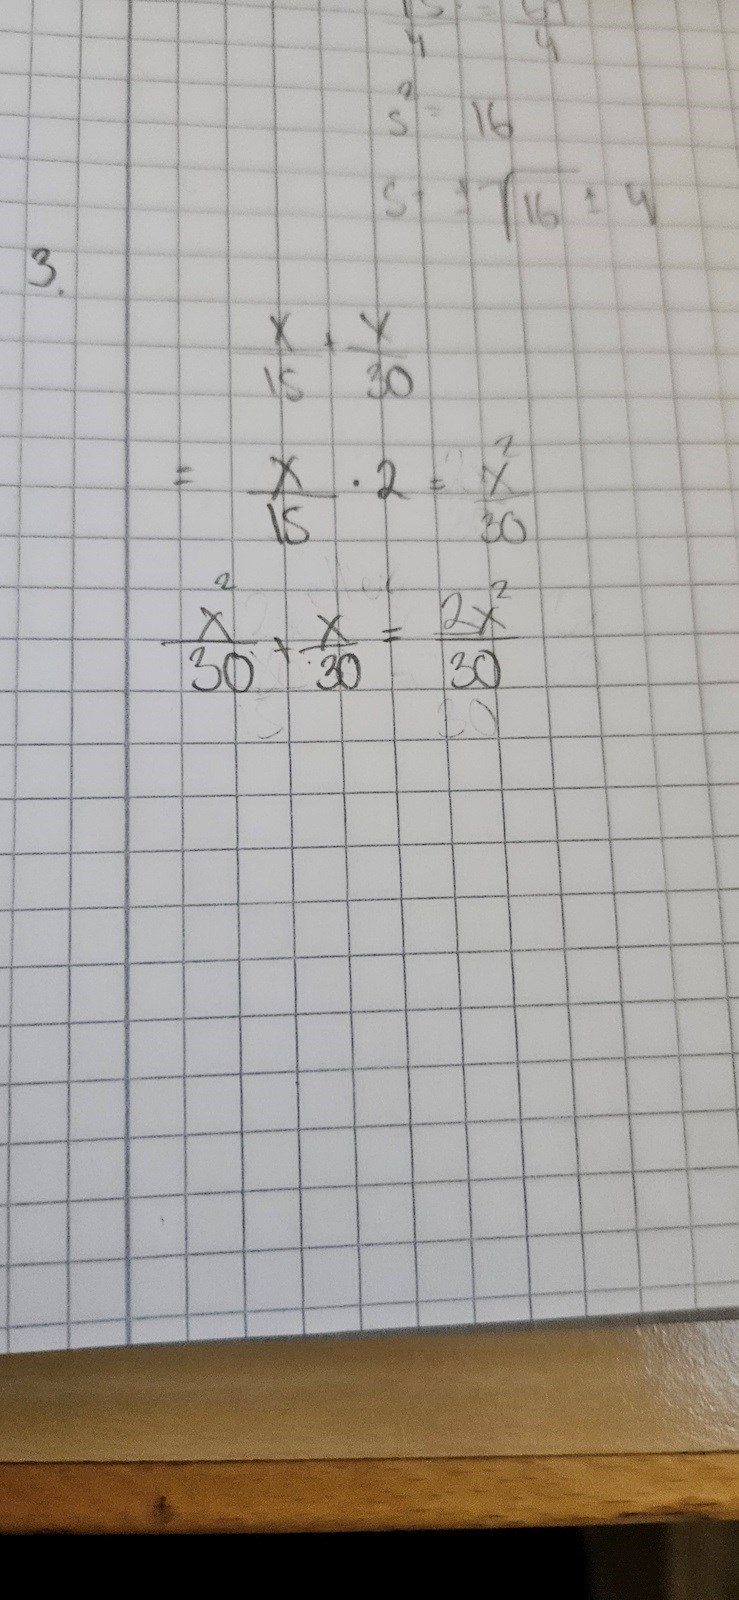 4 4
s² = 16
s = ±√16 ± 4
3.
x/15 + x/30
= x/15 · 2 = x²/30
x²/30 + x/30 = 2x²/30